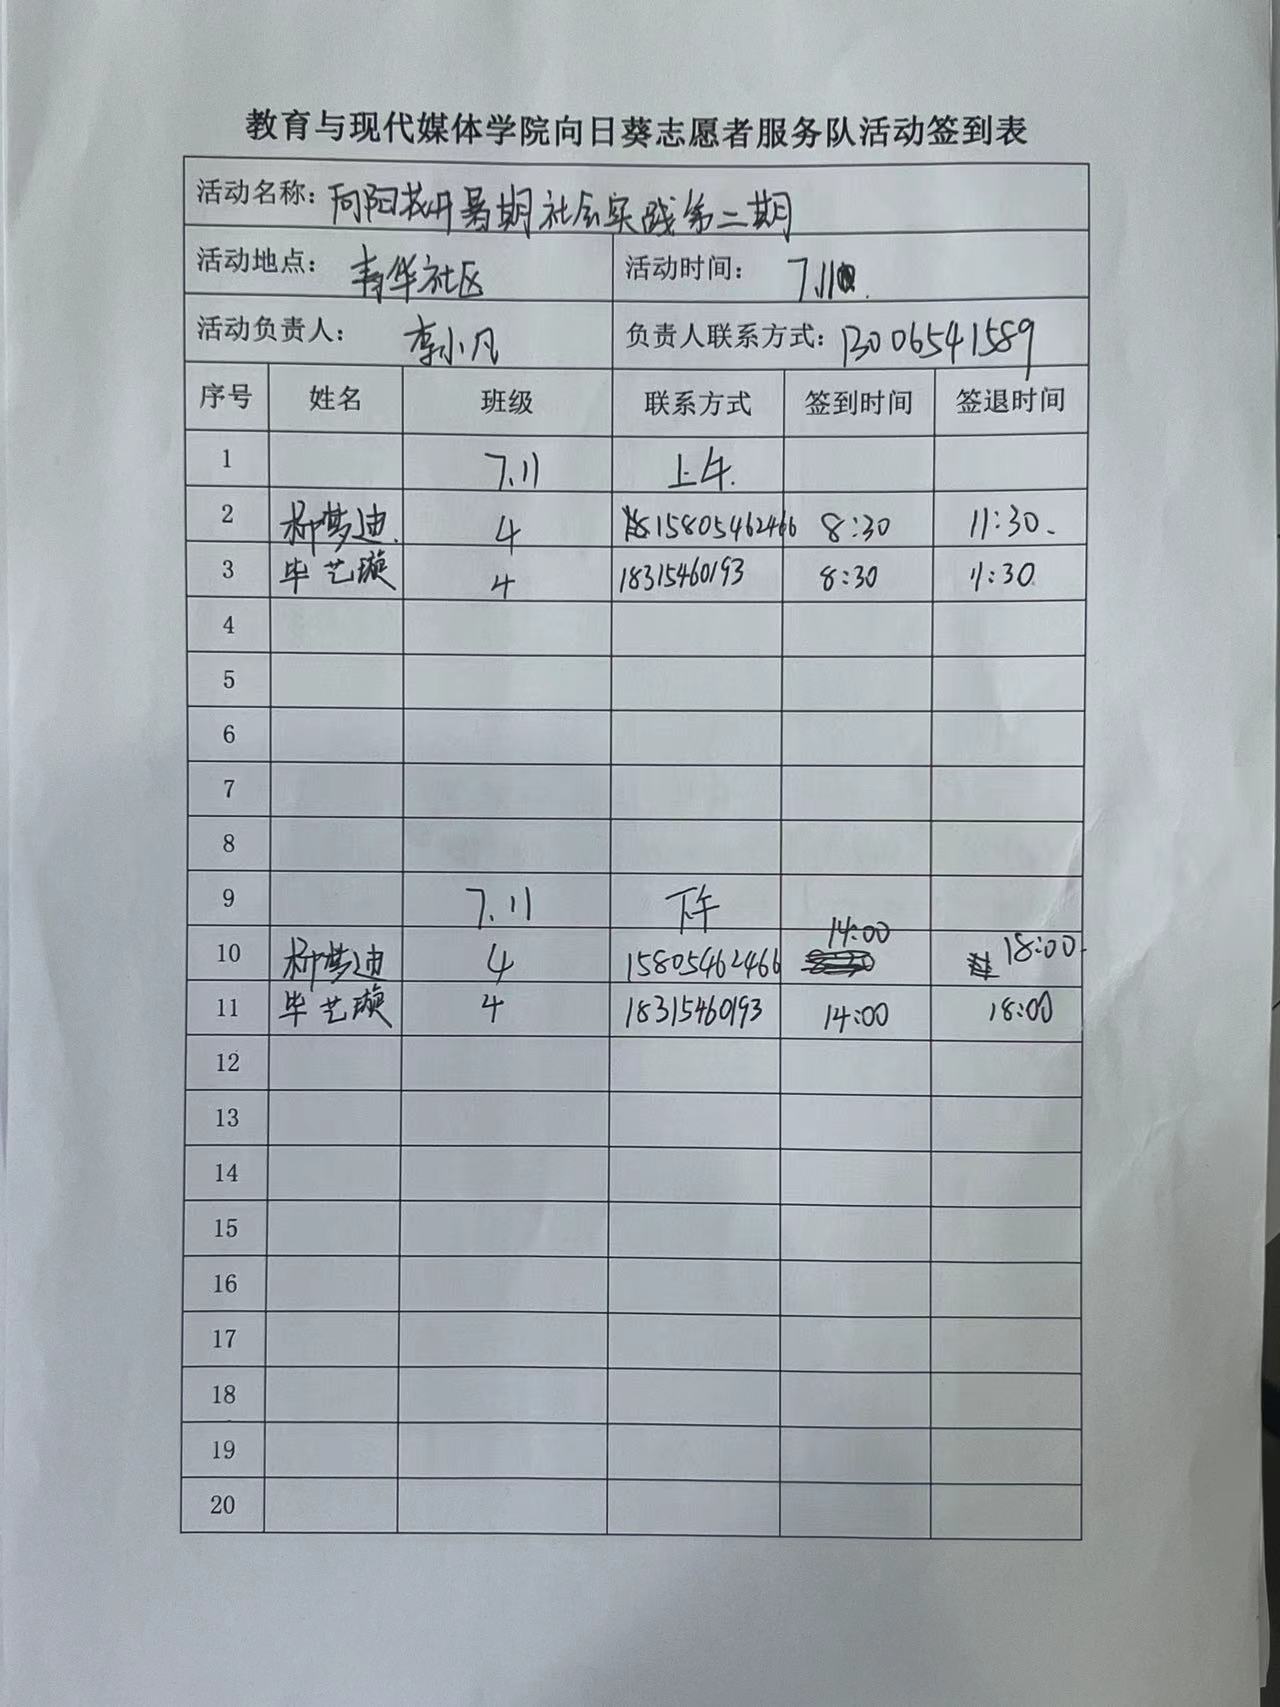 教育与现代媒体学院向日葵志愿者服务队活动签到表
活动名称：向阳花开暑期社会实践第二期
活动地点：青华社区 活动时间：7.11
活动负责人：李小凡 负责人联系方式：13006541589
序号 姓名 班级 联系方式 签到时间 签退时间
1 7.11 上午.
2 柳梦迪. 4 15805462466 8:30 11:30.
3 毕艺璇 4 18315460193 8:30 11:30
4
5
6
7
8
9 7.11 下午
10 柳梦迪 4 15805462466 14:00 18:00
11 毕艺璇 4 18315460193 14:00 18:00
12
13
14
15
16
17
18
19
20